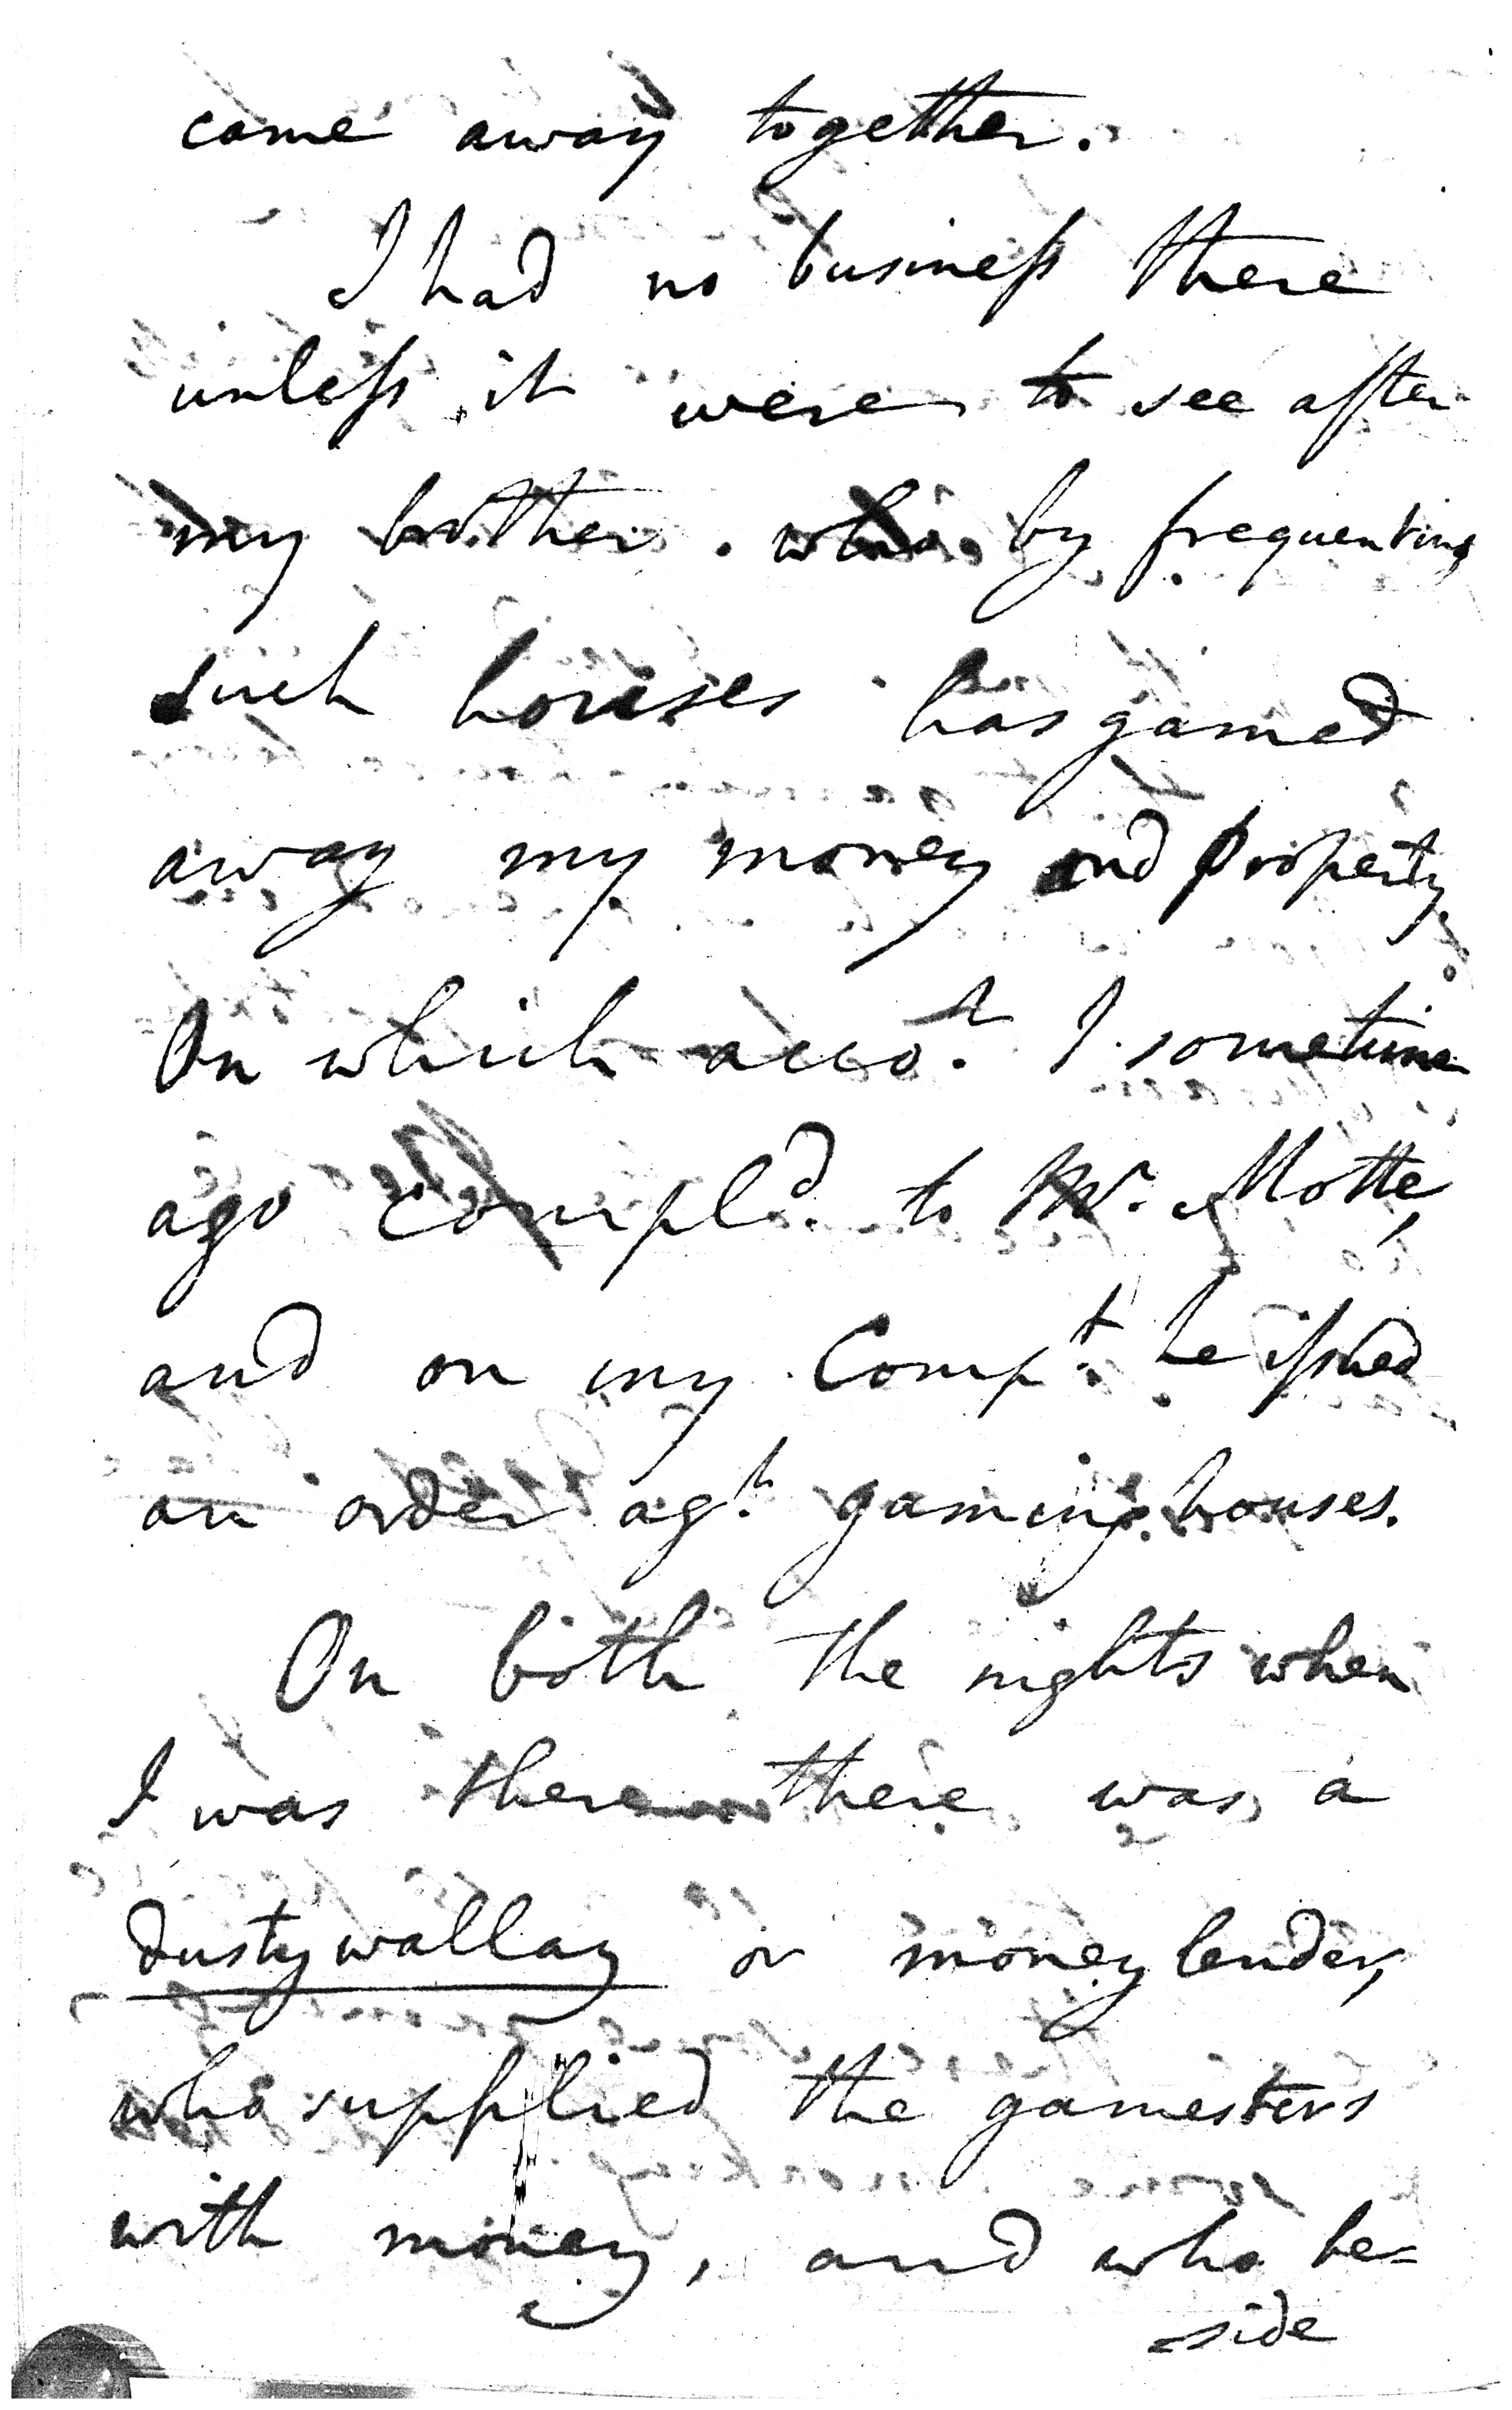 came away together.
I had no business there
unless it were to see after
my brother. who by frequenting
such houses has gamed
away my money and property
On which acco.t I sometime
ago compl.d to Mr. Motte,
and on my Comp.t he issued
an order ag.t gaming houses.
On both the nights when
I was there there was a
dustywallay or money lender,
who supplied the gamesters
with money, and who be=
side